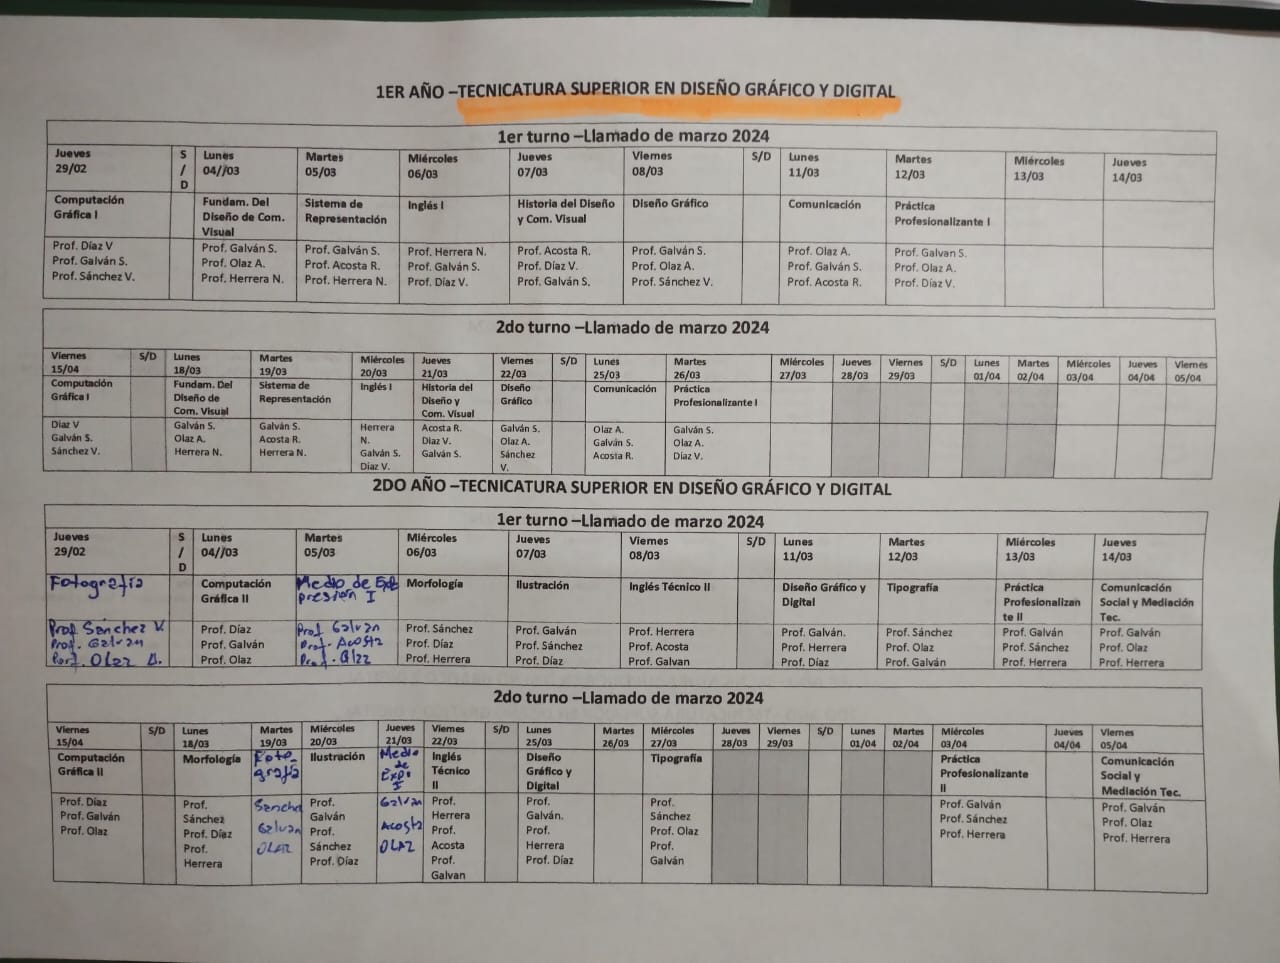 1ER AÑO –TECNICATURA SUPERIOR EN DISEÑO GRÁFICO Y DIGITAL
1er turno –Llamado de marzo 2024
Jueves 29/02 | S/D | Lunes 04//03 | Martes 05/03 | Miércoles 06/03 | Jueves 07/03 | Viernes 08/03 | S/D | Lunes 11/03 | Martes 12/03 | Miércoles 13/03 | Jueves 14/03
Computación Gráfica I | Fundam. Del Diseño de Com. Visual | Sistema de Representación | Inglés I | Historia del Diseño y Com. Visual | Diseño Gráfico | Comunicación | Práctica Profesionalizante I
Prof. Díaz V | Prof. Galván S. | Prof. Galván S. | Prof. Herrera N. | Prof. Acosta R. | Prof. Galván S. | Prof. Olaz A. | Prof. Galvan S.
Prof. Galván S. | Prof. Olaz A. | Prof. Acosta R. | Prof. Galván S. | Prof. Díaz V. | Prof. Olaz A. | Prof. Galván S. | Prof. Olaz A.
Prof. Sánchez V. | Prof. Herrera N. | Prof. Herrera N. | Prof. Díaz V. | Prof. Galván S. | Prof. Sánchez V. | Prof. Acosta R. | Prof. Díaz V.
2do turno –Llamado de marzo 2024
Viernes 15/04 | S/D | Lunes 18/03 | Martes 19/03 | Miércoles 20/03 | Jueves 21/03 | Viernes 22/03 | S/D | Lunes 25/03 | Martes 26/03 | Miércoles 27/03 | Jueves 28/03 | Viernes 29/03 | S/D | Lunes 01/04 | Martes 02/04 | Miércoles 03/04 | Jueves 04/04 | Viernes 05/04
Computación Gráfica I | Fundam. Del Diseño de Com. Visual | Sistema de Representación | Inglés I | Historia del Diseño y Com. Visual | Diseño Gráfico | Comunicación | Práctica Profesionalizante I
Díaz V | Galván S. | Galván S. | Herrera N. | Acosta R. | Galván S. | Olaz A. | Galván S.
Galván S. | Olaz A. | Acosta R. | Galván S. | Díaz V. | Olaz A. | Galván S. | Olaz A.
Sánchez V. | Herrera N. | Herrera N. | Díaz V. | Galván S. | Sánchez V. | Acosta R. | Díaz V.
2DO AÑO –TECNICATURA SUPERIOR EN DISEÑO GRÁFICO Y DIGITAL
1er turno –Llamado de marzo 2024
Jueves 29/02 | S/D | Lunes 04//03 | Martes 05/03 | Miércoles 06/03 | Jueves 07/03 | Viernes 08/03 | S/D | Lunes 11/03 | Martes 12/03 | Miércoles 13/03 | Jueves 14/03
Fotografía | Computación Gráfica II | Medio de Expresión I | Morfología | Ilustración | Inglés Técnico II | Diseño Gráfico y Digital | Tipografía | Práctica Profesionalizante II | Comunicación Social y Mediación Tec.
Prof Sánchez V. | Prof. Díaz | Prof Galván | Prof. Sánchez | Prof. Galván | Prof. Herrera | Prof. Galván. | Prof. Sánchez | Prof. Galván | Prof. Galván
Prof. Galvan | Prof. Galván | Prof. Acosta | Prof. Díaz | Prof. Sánchez | Prof. Acosta | Prof. Herrera | Prof. Olaz | Prof. Sánchez | Prof. Olaz
Prof. Olaz A. | Prof. Olaz | Prof. Olaz | Prof. Herrera | Prof. Díaz | Prof. Galvan | Prof. Díaz | Prof. Galván | Prof. Herrera | Prof. Herrera
2do turno –Llamado de marzo 2024
Viernes 15/04 | S/D | Lunes 18/03 | Martes 19/03 | Miércoles 20/03 | Jueves 21/03 | Viernes 22/03 | S/D | Lunes 25/03 | Martes 26/03 | Miércoles 27/03 | Jueves 28/03 | Viernes 29/03 | S/D | Lunes 01/04 | Martes 02/04 | Miércoles 03/04 | Jueves 04/04 | Viernes 05/04
Computación Gráfica II | Morfología | Fotografía | Ilustración | Medio de Exp. I | Inglés Técnico II | Diseño Gráfico y Digital | Tipografía | Práctica Profesionalizante II | Comunicación Social y Mediación Tec.
Prof. Díaz | Prof. Sánchez | Sancha | Prof. Galván | Galvan | Prof. Herrera | Prof. Galván. | Prof. Sánchez | Prof. Galván | Prof. Galván
Prof. Galván | Prof. Díaz | Galvan | Prof. Sánchez | Acosta | Prof. Acosta | Prof. Herrera | Prof. Olaz | Prof. Sánchez | Prof. Olaz
Prof. Olaz | Prof. Herrera | OLAZ | Prof. Díaz | OLAZ | Prof. Galvan | Prof. Díaz | Prof. Galván | Prof. Herrera | Prof. Herrera